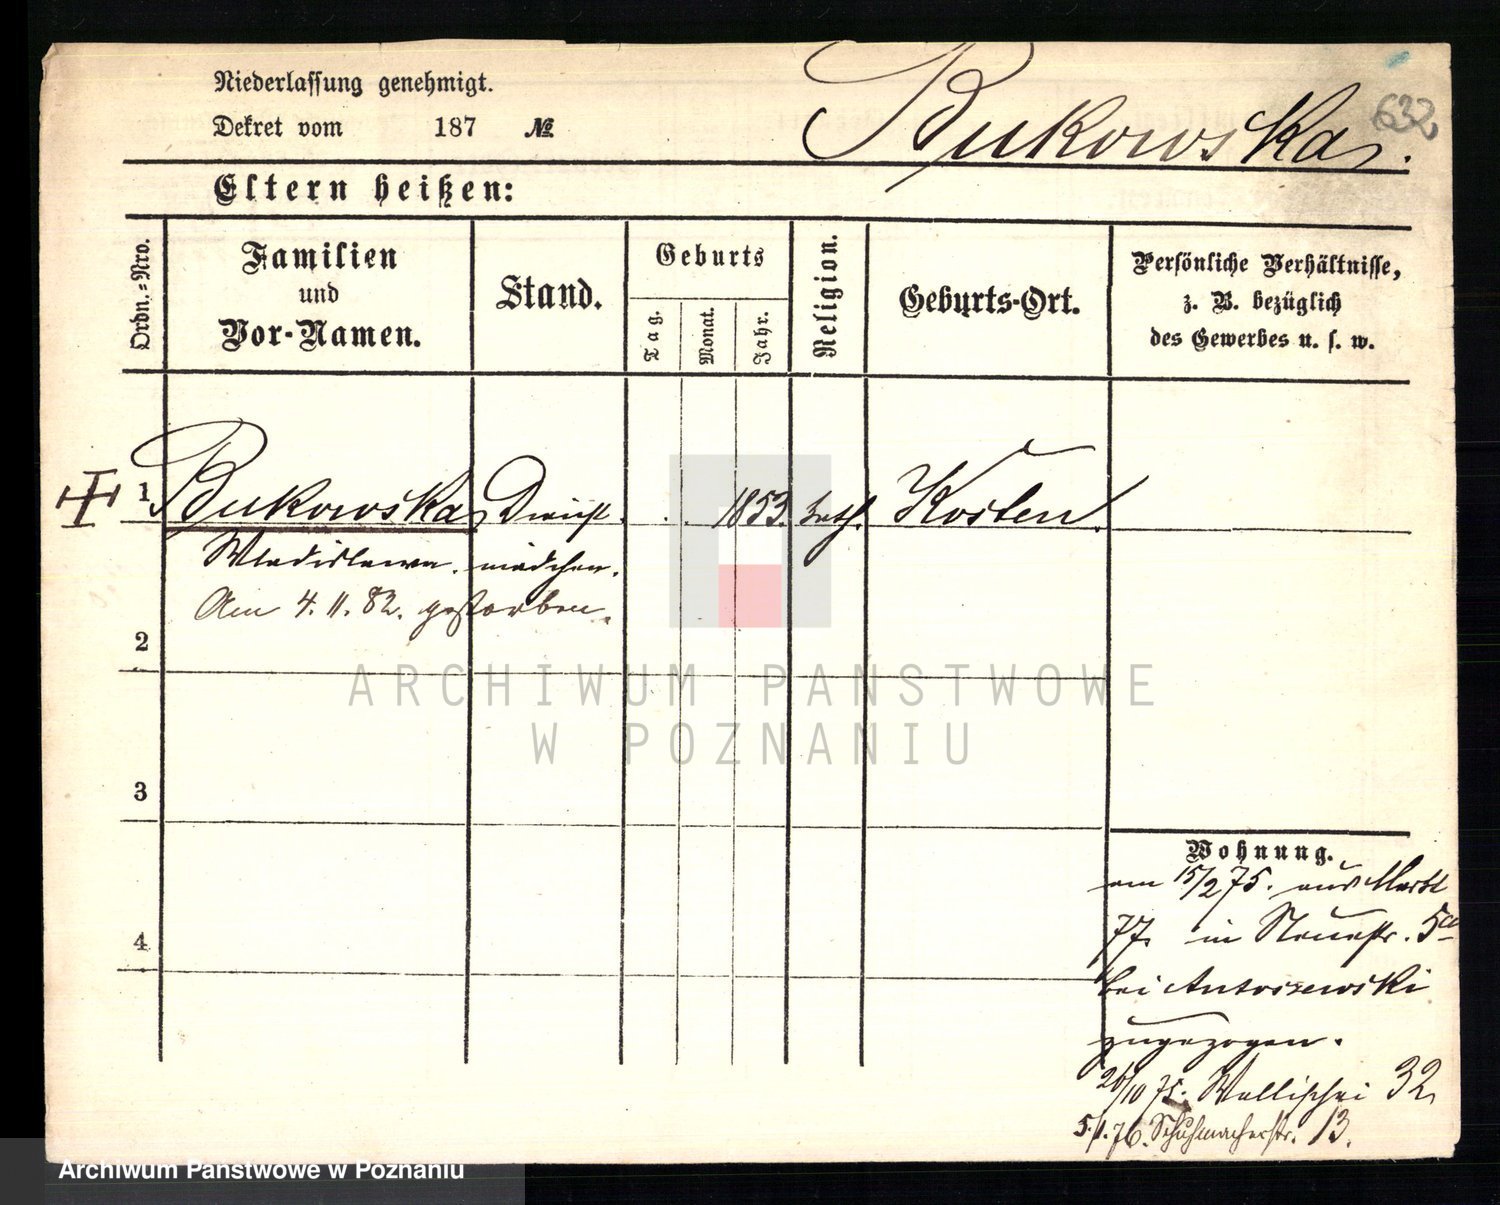 Niederlassung genehmigt.
Dekret vom 187 №
Bukowska.
632
Eltern heißen:
Ordn.=Nro.
Familien
und
Vor-Namen.
Stand.
Geburts
Tag.
Monat.
Jahr.
Religion.
Geburts-Ort.
Persönliche Verhältnisse,
z. B. bezüglich
des Gewerbes u. s. w.
1 Bukowska Dienst- . . 1853. kath. Kosten.
Wladislawa. mädchen.
Am 4. 11. 82. gestorben.
2
3
4
ARCHIWUM PAŃSTWOWE
W POZNANIU
Wohnung.
am 15/2 75. aus Markt
77. in Neuestr. 5a
bei Antoszewski
zugezogen.
20/10 75. Wallischei 32
5./1. 76. Schuhmacherstr. 13.
Archiwum Państwowe w Poznaniu